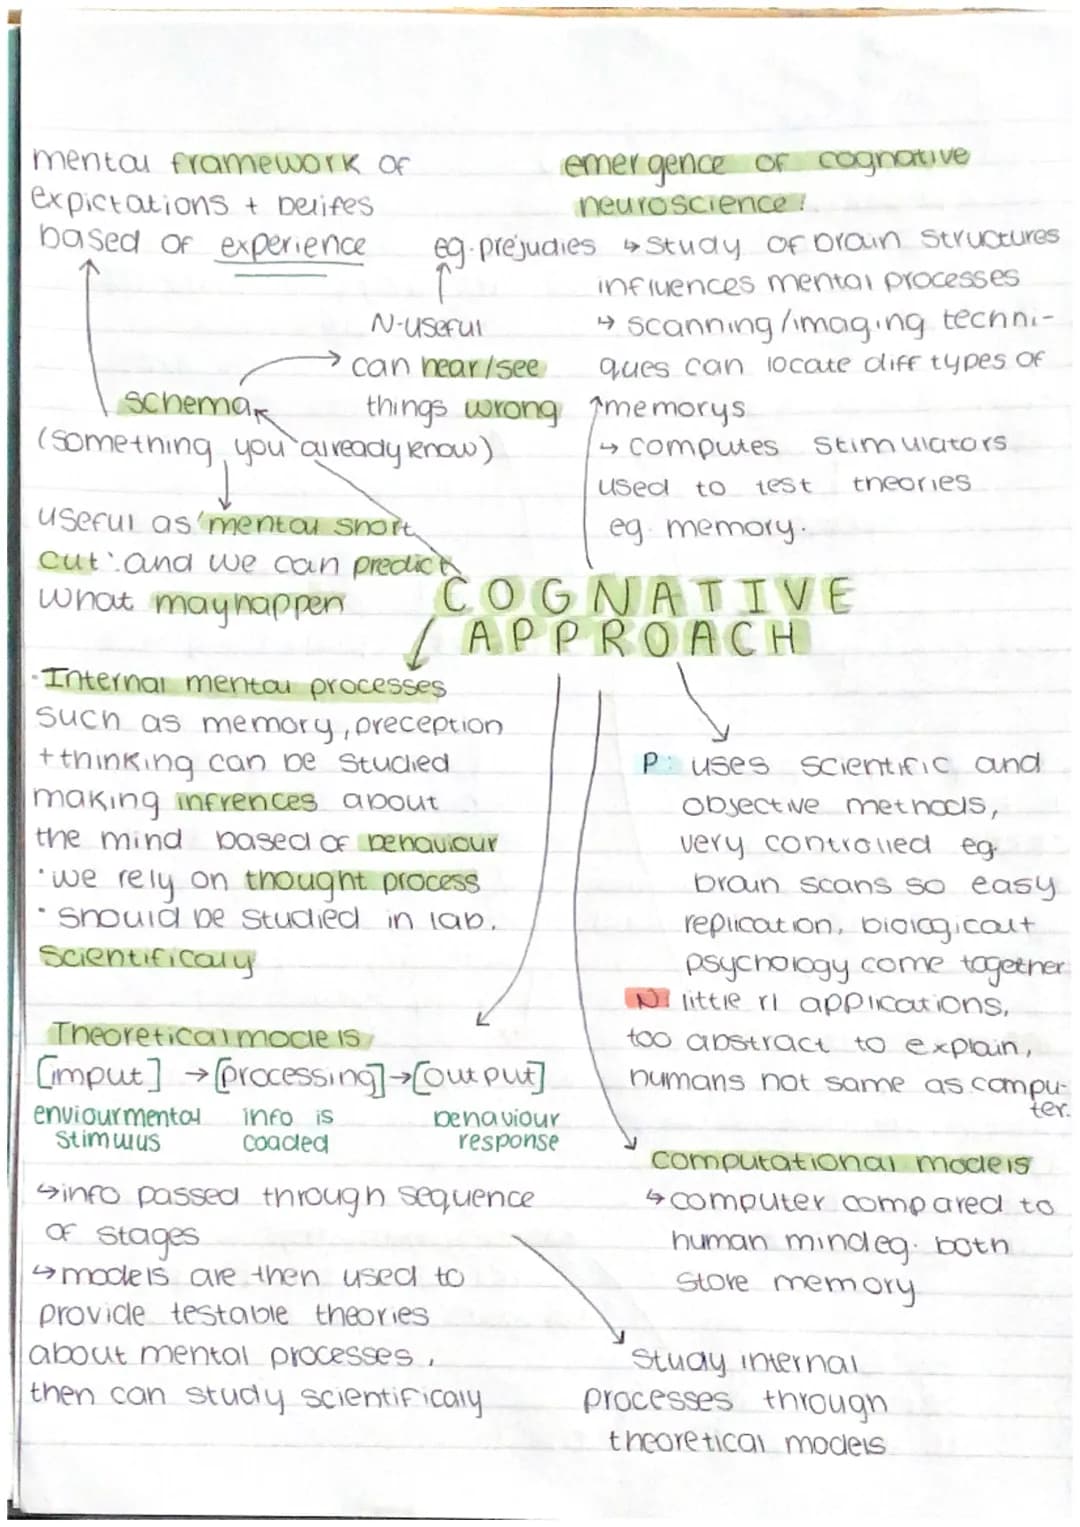 mental framework of
expictations + belifes
based of experience
eg. prejudies
N-useful
can hear/see
things wrong
schema
(something you already know)
useful as 'mental short
cut' and we can predict
what may happen
emergence of cognative
neuroscience!
↳ study of brain structures
influences mental processes
↳ scanning/imaging techni-
ques can locate diff types of
memorys
↳ computes stimulators
used to test theories
eg. memory.
COGNATIVE
APPROACH
·Internal mental processes
such as memory, preception
+ thinking can be studied
making infrences about
the mind based of behaviour
·we rely on thought process
·should be studied in lab.
scientificaly
P: uses scientific and
objective methods,
very controlled eg.
brain scans so easy
replication, biological +
psychology come together
N: little rl applications,
too abstract to explain,
humans not same as compu-
ter.
Theoretical models
[imput] → [processing] → [output]
enviourmental info is behaviour
stimulus coaded response
↳ info passed through sequence
of stages
↳ models are then used to
provide testable theories
about mental processes,
then can study scientificaly
computational models
↳ computer compared to
human mind eg. both
store memory
Study internal
processes through
theoretical models